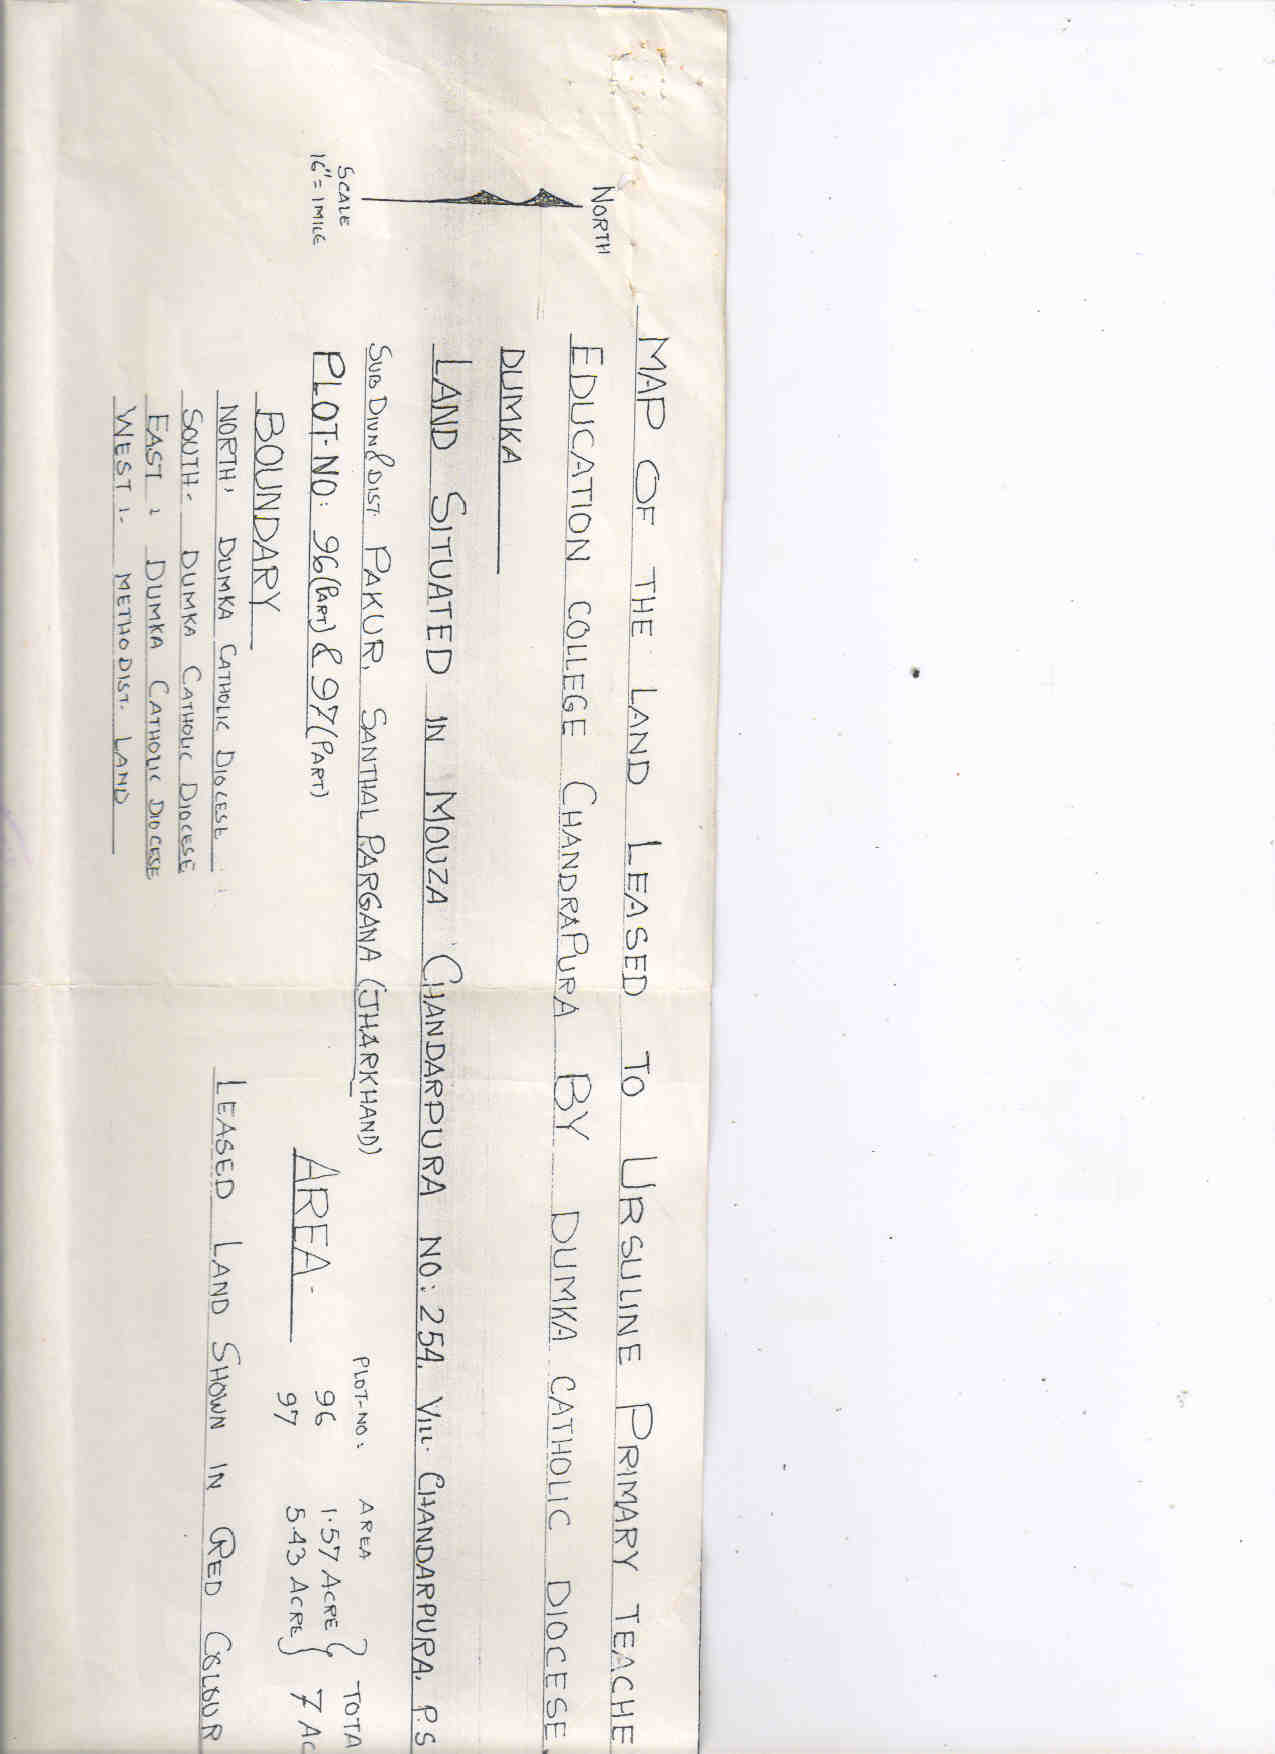 NORTH
SCALE
16" = 1 MILE
MAP OF THE LAND LEASED TO URSULINE PRIMARY TEACHE
EDUCATION COLLEGE CHANDRAPURA BY DUMKA CATHOLIC DIOCESE
DUMKA
LAND SITUATED IN MOUZA CHANDARPURA NO: 254. VILL. CHANDARPURA. P.S
SUB DIVN & DIST. PAKUR, SANTHAL PARGANA (JHARKHAND)
PLOT-NO: 96(PART) & 97(PART)
BOUNDARY
NORTH, DUMKA CATHOLIC DIOCESE
SOUTH- DUMKA CATHOLIC DIOCESE
EAST : DUMKA CATHOLIC DIOCESE
WEST :- METHODIST. LAND
AREA-
PLOT-NO: AREA TOTA
96 1.57 ACRE
97 5.43 ACRE 7 AC
LEASED LAND SHOWN IN RED COLOUR